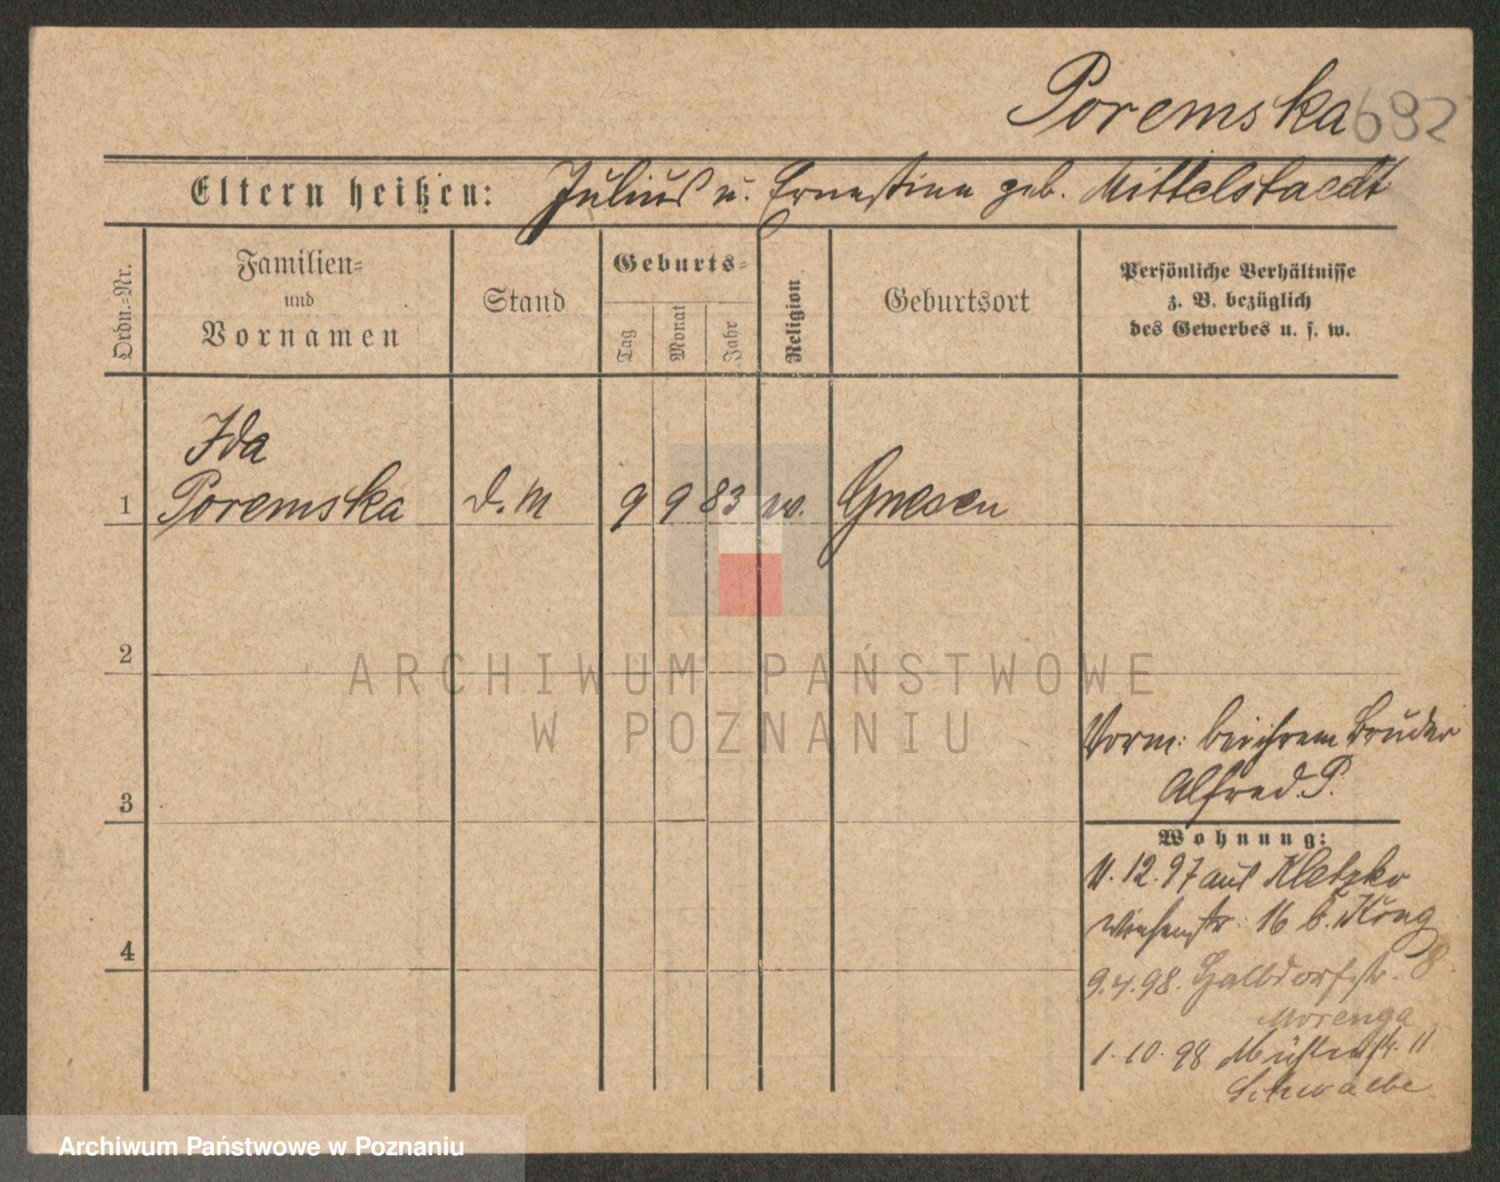 Poremska 682
Eltern heißen: Julius u. Ernestine geb. Mittelstaedt
Ordn.=Nr.
Familien=
und
Vornamen
Stand
Geburts=
Tag
Monat
Jahr
Religion
Geburtsort
Persönliche Verhältnisse
z. B. bezüglich
des Gewerbes u. s. w.
Ida
1 Poremska d. M 9 9 83 Gnesen
2
ARCHIWUM PAŃSTWOWE
W POZNANIU
Vorm: bei ihrem Bruder
Alfred. P.
3
Wohnung:
11.12.97 aus Kletzko
16 b.
4
9.4.98. Halbdorfstr. 8.
Morenga
1.10.98 Mühlenstr. 11
Schwalbe
Archiwum Państwowe w Poznaniu